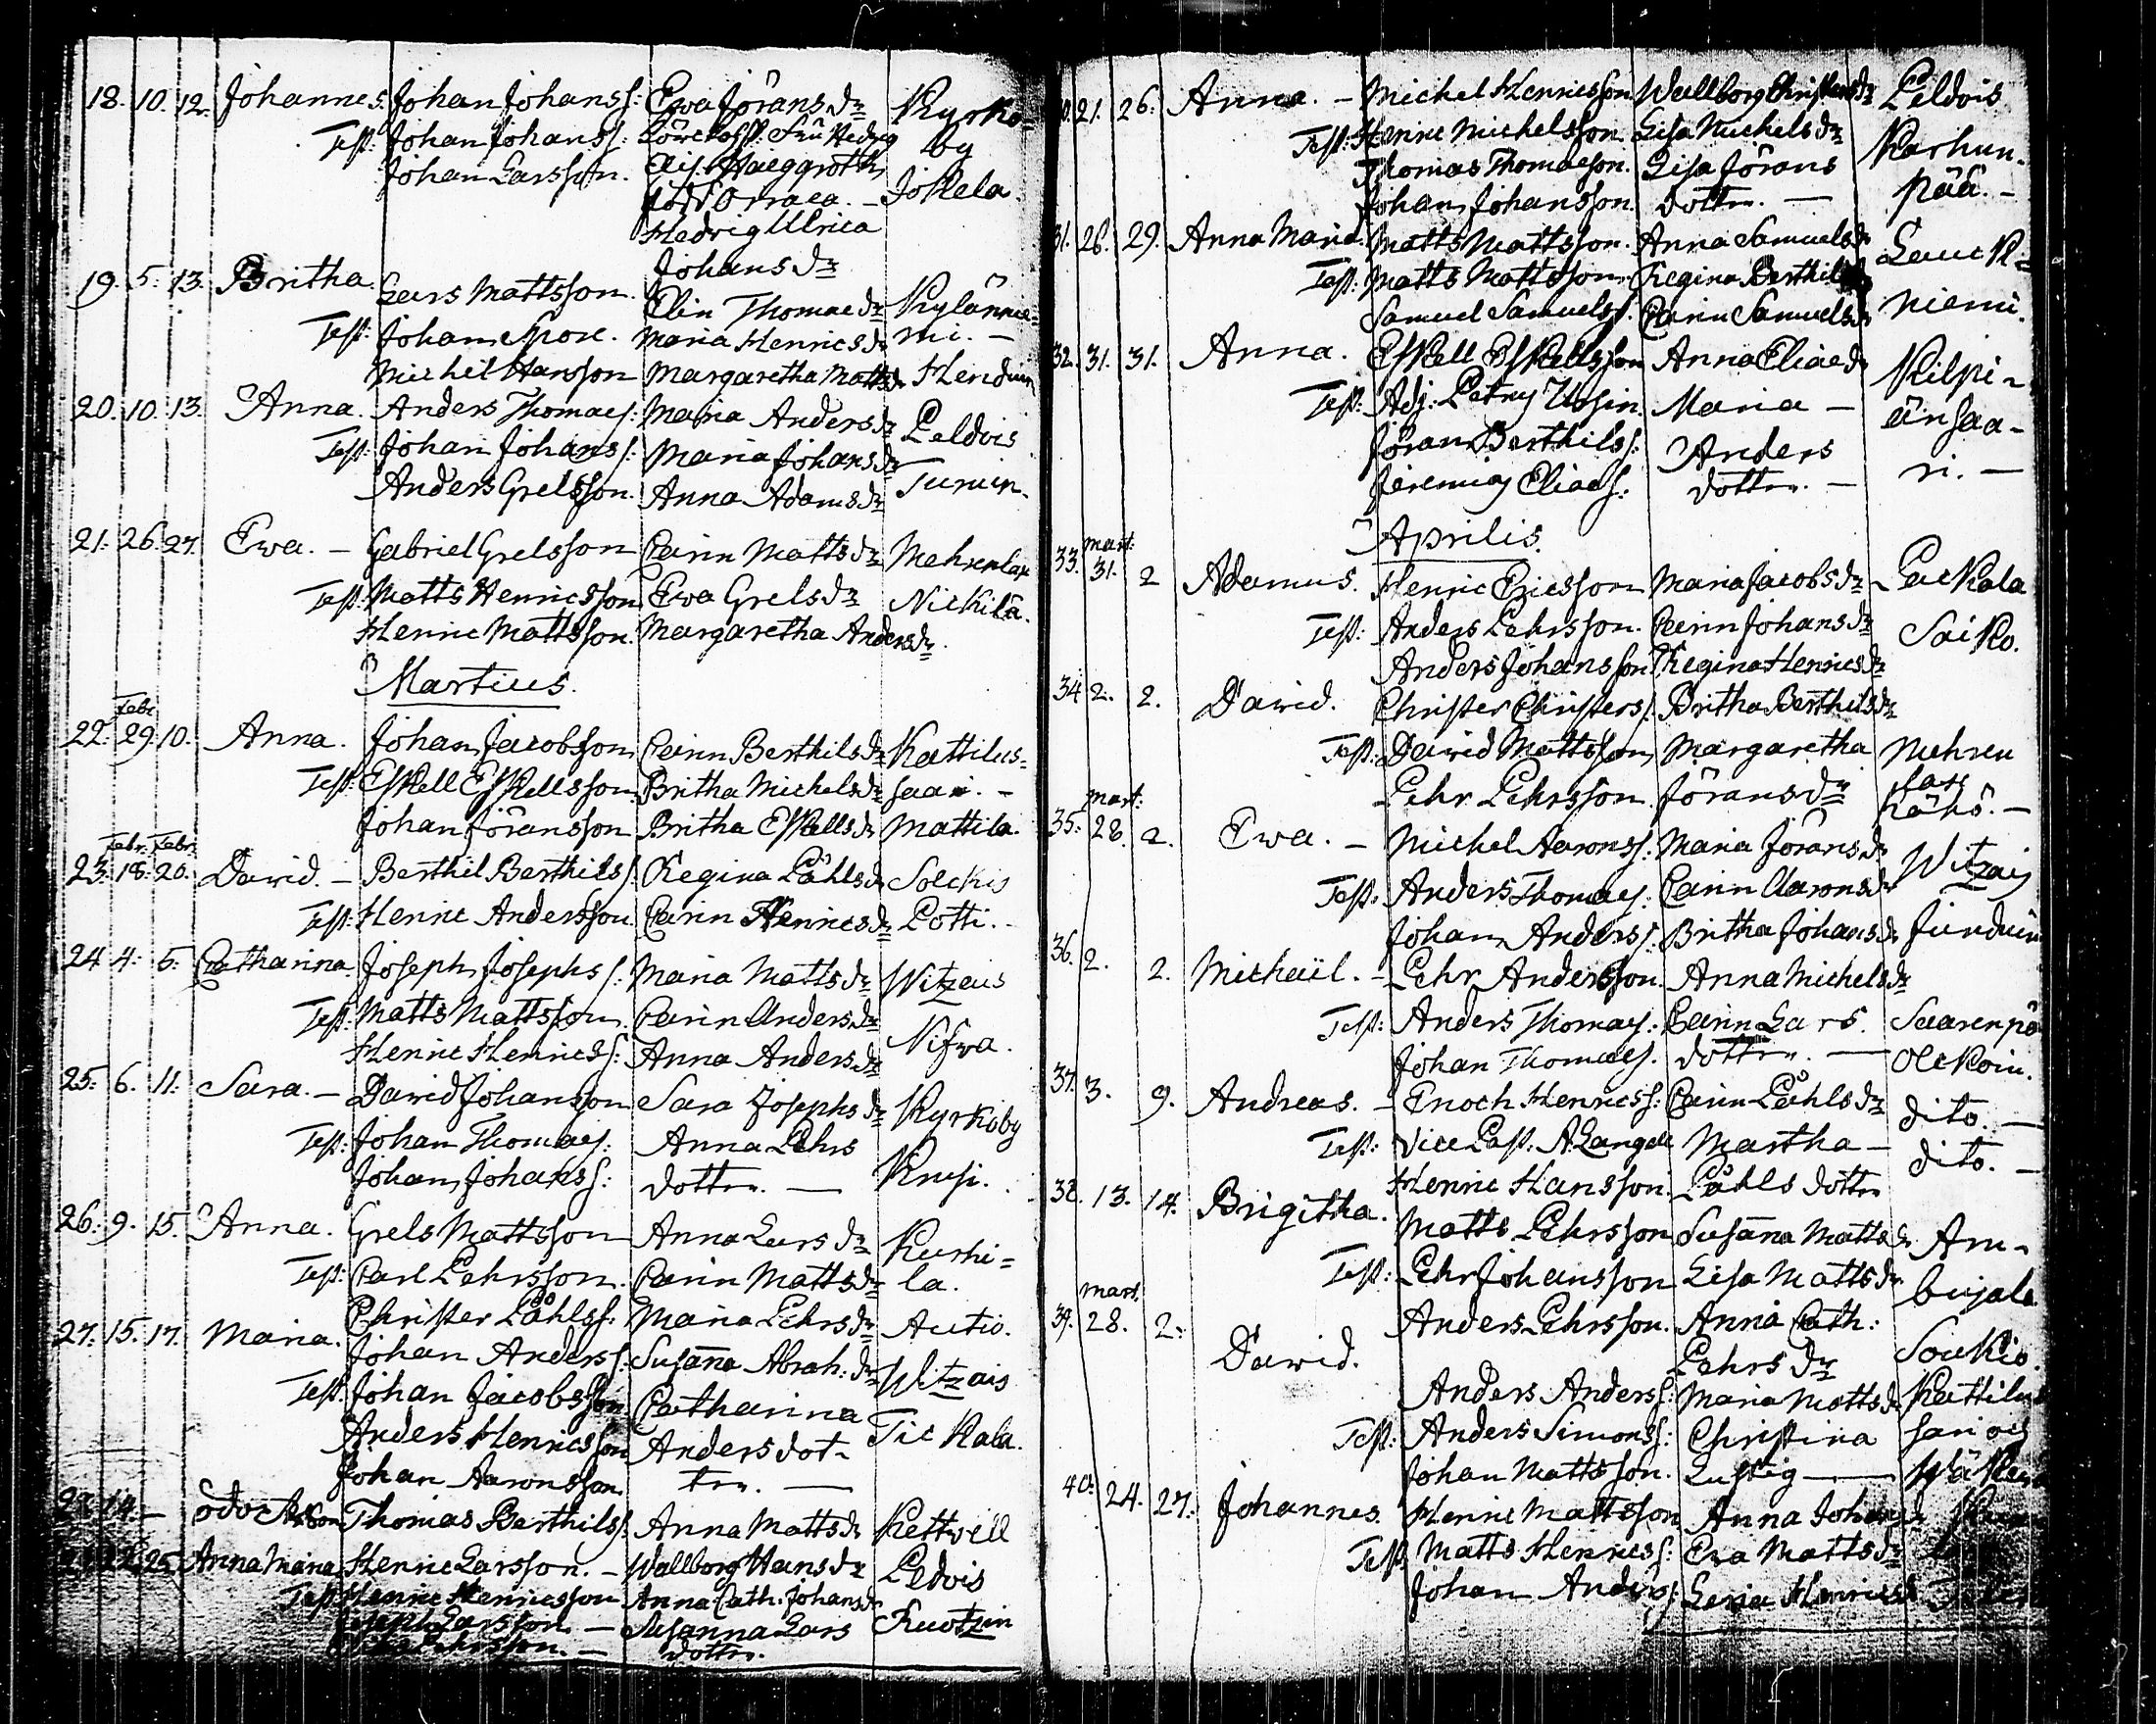 18. 10. 12. Johannes. Johan Johanss: Ewa Jörans dr Kyrko=
Test: Johan Johanss: Fru Hedvig by
Johan Larsson. Elis. Haeggroth Jokela.
Orraea. –
Hedvig Ulrica
Johans dr
19. 5. 13. Britha. Lars Mattsson. Elin Thomae dr Kylännie=
Test: Johan Spore. Maria Henrics dr mi. –
Michel Hansson Margaretha Matts dr
20. 10. 13. Anna. Anders Thomaes: Maria Anders dr Peldois
Test: Johan Johanss: Maria Johans dr
Anders Grelsson. Anna Adams dr
21. 26. 27. Ewa. – Gabriel Grelsson Carin Matts dr Mehrenlax
Test: Matts Henricsson Ewa Grels dr Nickilä.
Henric Mattsson. Margaretha Anders dr.
Martius.
Febr.
22. 29. 10. Anna. Johan Jacobsson Carin Berthils dr Kattilus=
Test: Eskell Eskellsson Britha Michels dr saari. –
Johan Jöransson Britha Eskells dr Mattila.
Febr. Febr.
23. 18. 20. David. – Berthil Berthilss: Regina Påhls dr
Test: Henric Andersson Carin Henrics dr Potti. –
24. 4. 5. Catharina Joseph Josephss: Maria Matts dr Witzais
Test: Matts Mattsson. Carin Anders dr
Henric Henricss: Anna Anders dr Nifwa.
25. 6. 11. Sara. – David Johansson Sara Josephs dr Kyrkoby
Test: Johan Thomaes: Anna Pehrs
Johan Johanss: dotter. – Knsi.
26. 9. 15. Anna. Grels Mattsson Anna Lars dr Kurki=
Test: Carl Pehrsson. Carin Matts dr la.
Christer Påhlss: Maria Pehrs dr Autio.
27. 15. 17. Maria. Johan Anderss: Susanna Abrah: dr Witzais
Test: Johan Jacobsson Catharina
Anders Henricsson Anders dot= Tickala.
Johan Aaronsson ter. –
28. 14. – Thomas Berthilss: Anna Matts dr Kettvell
25. Anna Maria Henric Larsson. – Wallborg Hans dr Peldois
Test: Henric Henricsson Anna Cath: Johans dr
Joseph Larsson. – Susanna Lars Ruotzin
dotter.
21. 26. Anna. – Michel Henricsson Wallborg Christers dr Peldois
Test: Henric Michelsson. Lisa Michels dr Karhun=
Thomas Thomaeson. Lisa Jörans pää. –
Johan Johansson. dotter. –
31. 26. 29. Anna Maria Matts Mattsson. Anna Samuels dr Lauck=
Test: Matts Mattsson. Regina Berthils dr
Samuel Samuelss. Carin Samuels dr niemi.
32. 31. 31. Anna. Eskell Eskellsson Anna Eliae dr Kilpi=
Test: Adj: Petrus Maria – änsaa=
Jöran Berthilss: Anders ri. –
Jeremias Eliaes: dotter. –
Aprilis.
Mart:
33. 31. 2 Adamus. Henric Ericsson Maria Jacobs dr Packala
Test: Anders Pehrsson. Carin Johans dr Saiko.
Anders Johansson Regina Henrics dr
34 2. 2. David. Christer Christerss. Britha Berthils dr
Test: David Mattsson Margaretha Mehren
Pehr Pehrsson. Jörans dr lax
Mart:
35. 28. 2. Ewa. – Michel Aaronss: Maria Jörans dr Witzais
Test: Anders Thomaes: Carin Aarons dr
Johan Anderss: Britha Johans dr Junduin
36. 2. 2. Michaël. – Pehr Andersson. Anna Michels dr
Test: Anders Thomaes: Carin Lars. Saarenpä
Johan Thomaes. dotter. – Olckoin.
37. 3. 9. Andreas. – Enoch Henricss: Carin Påhls dr dito. –
Test: Vice Past. A. Langell Martha – dito. –
Henric Hansson. Påhls dotter
38. 13. 14. Brigitha. Matts Pehrsson Susanna Matts dr Am=
Test: Pehr Johansson Lisa Matts dr bujala
Anders Pehrsson. Anna Cath: Souckio.
Pehrs dr
Mart.
39. 28. 2. David. Anders Anderss: Maria Matts dr Kattilus
Test: Anders Simonss: Christina sari och
Johan Mattsson. Lustig –
40. 24. 27. Johannes. Henric Mattsson Anna Johans dr
Test: Matts Henricss: Eva Matts dr
Johan Anderss: Lena Henrics dr